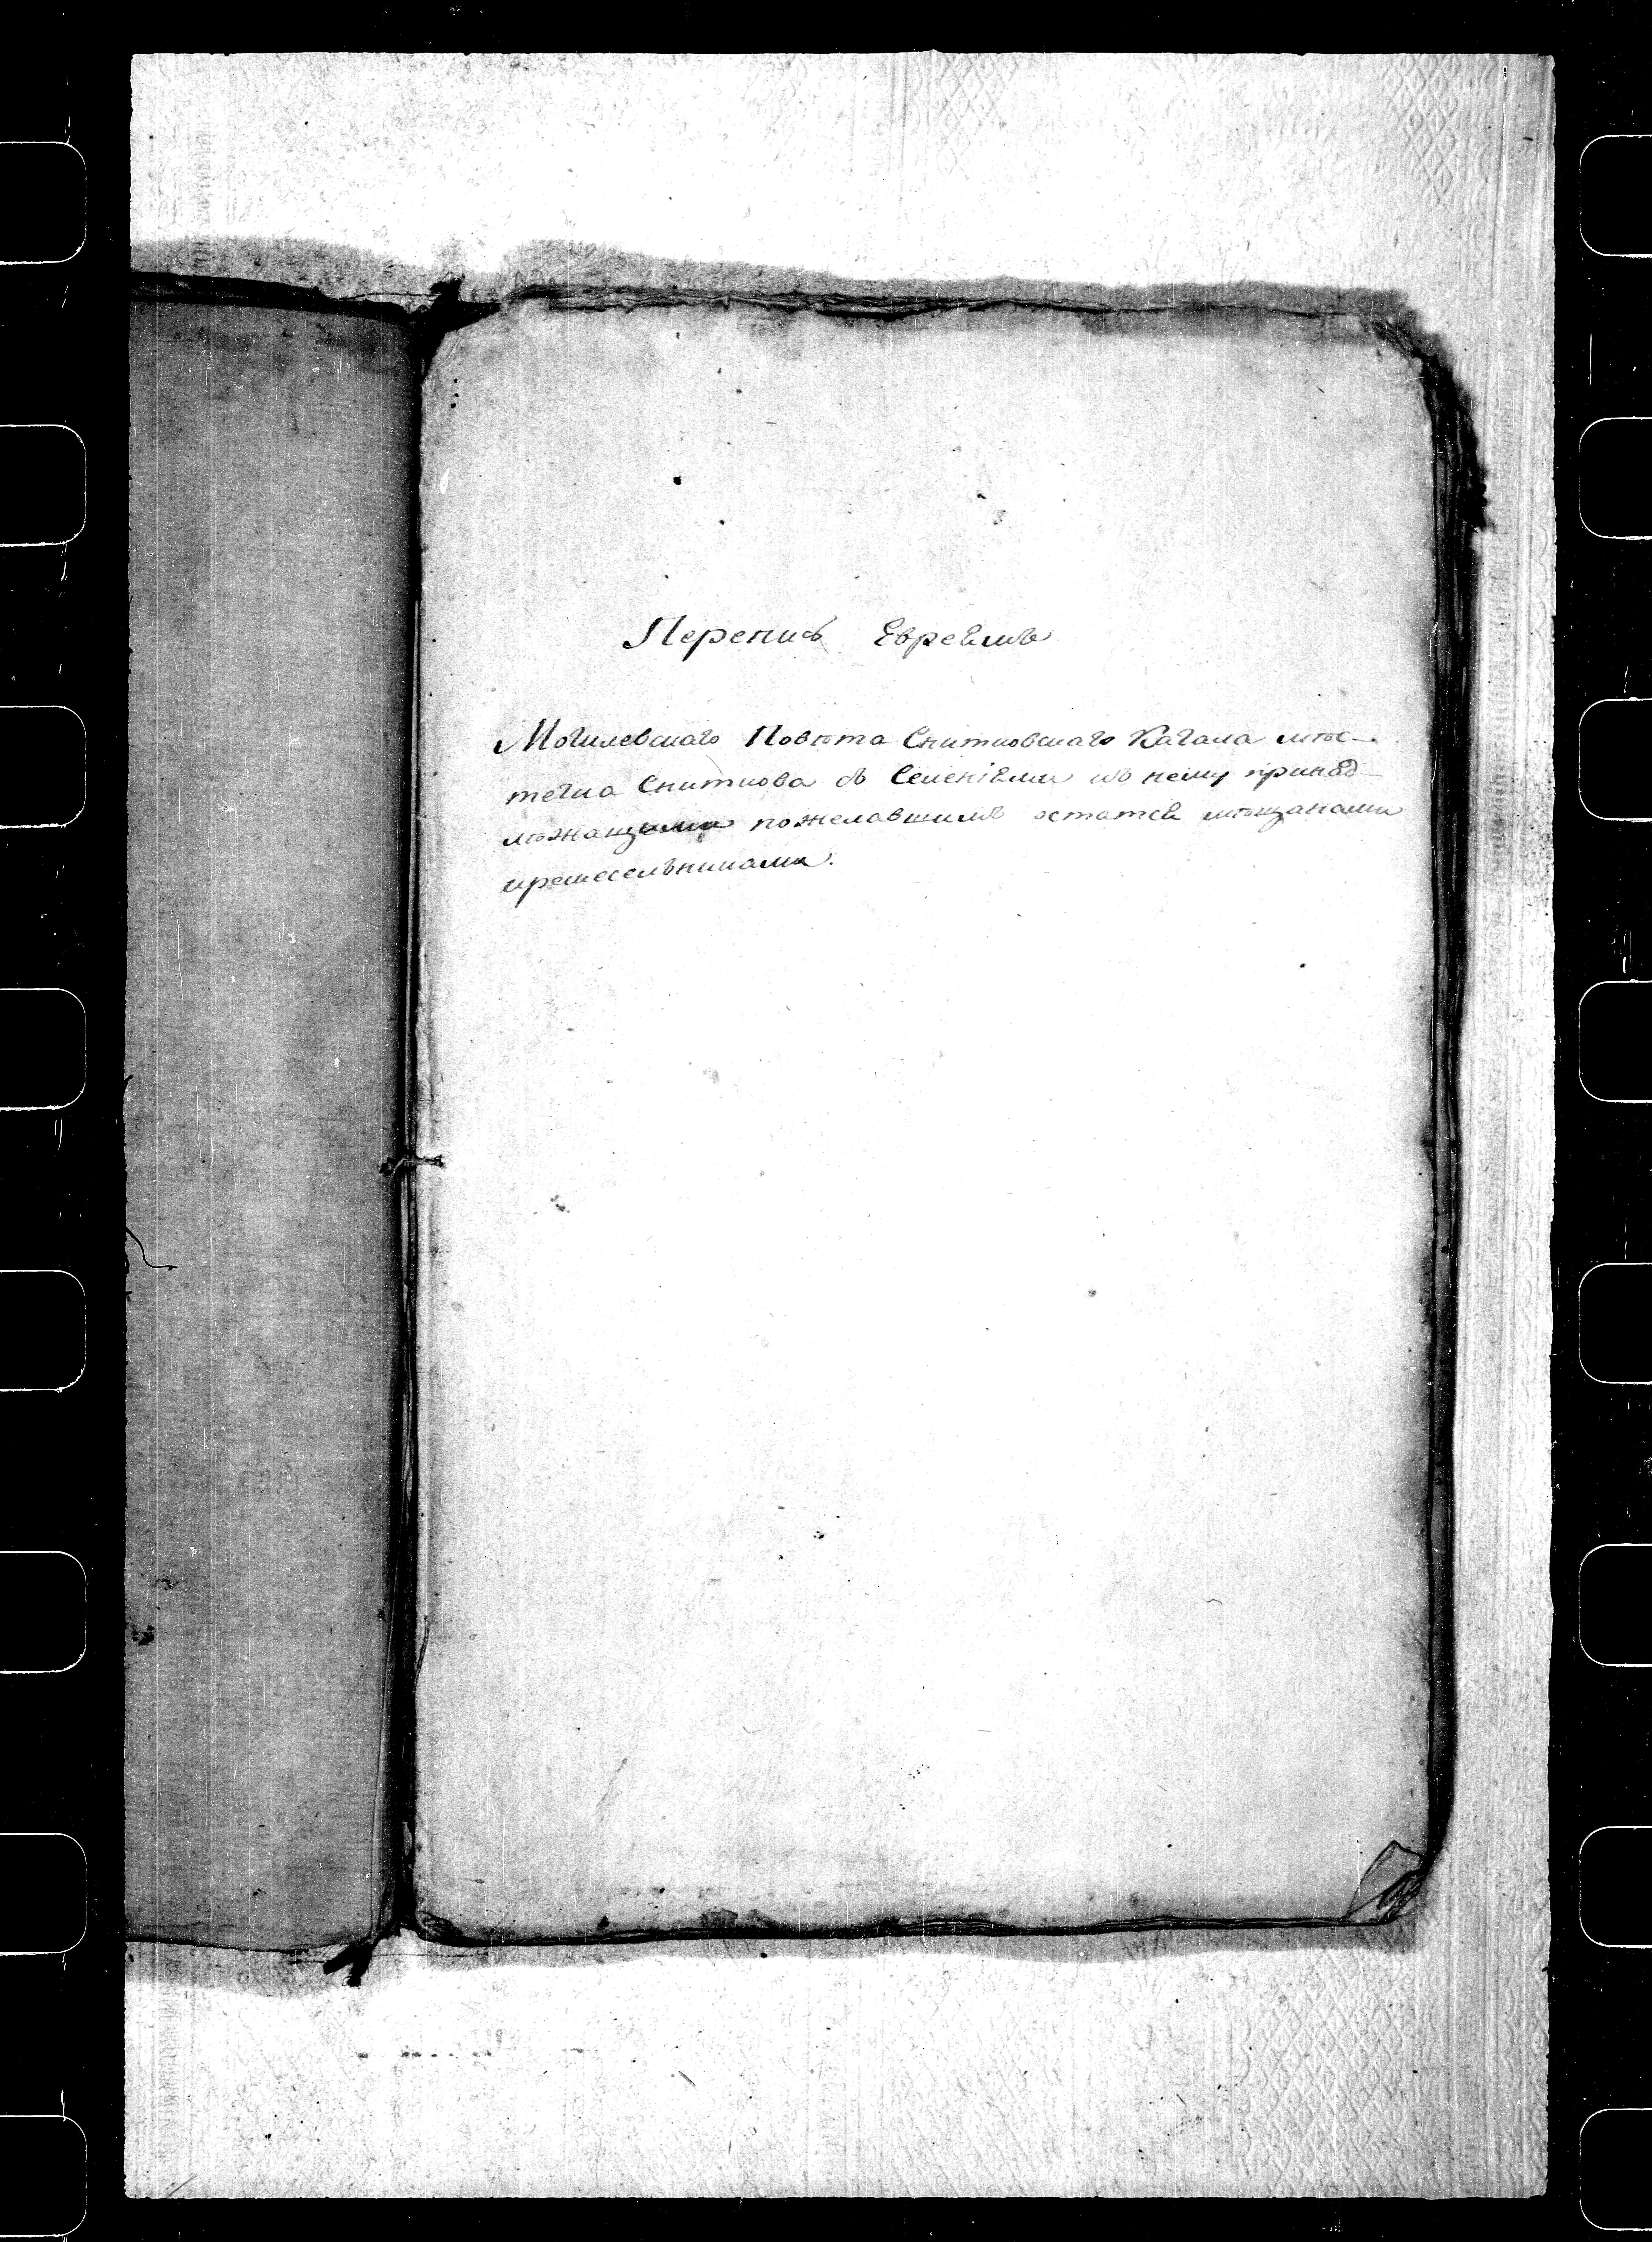 Перепись Евреямъ
Могилевскаго Повѣта Снитковскаго Кагала мѣс-
течка Сниткова съ Селеніями къ нему принад-
лѣжащими пожелавшимъ остатся мѣщанами